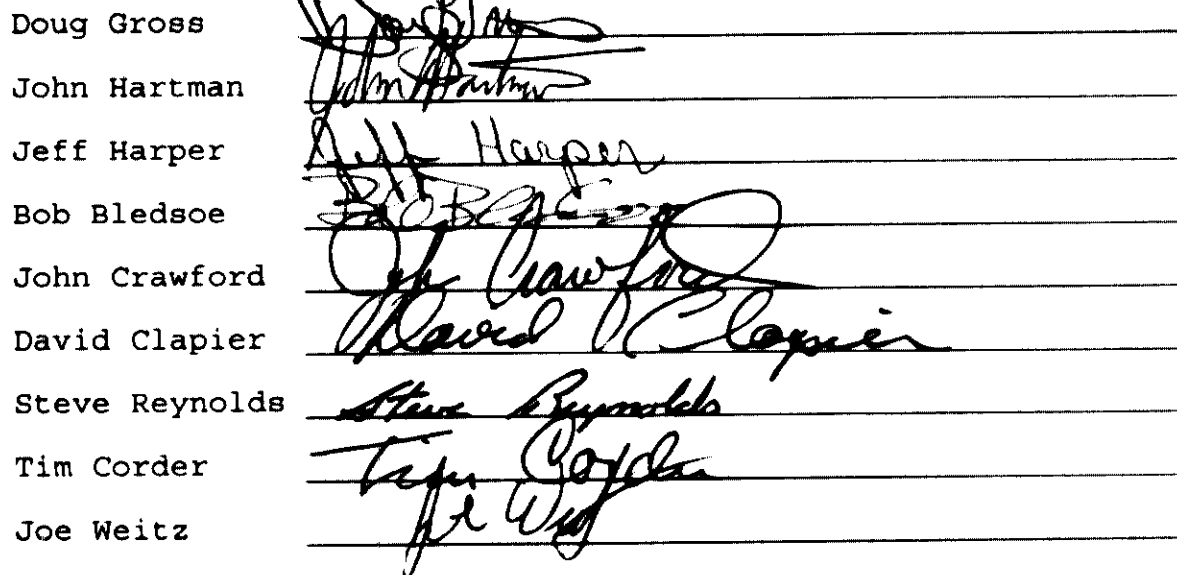 Doug Gross Doug Gross
John Hartman John Hartman
Jeff Harper Jeff Harper
Bob Bledsoe Bob Bledsoe
John Crawford John Crawford
David Clapier David Clapier
Steve Reynolds Steve Reynolds
Tim Corder Tim Corder
Joe Weitz Joe